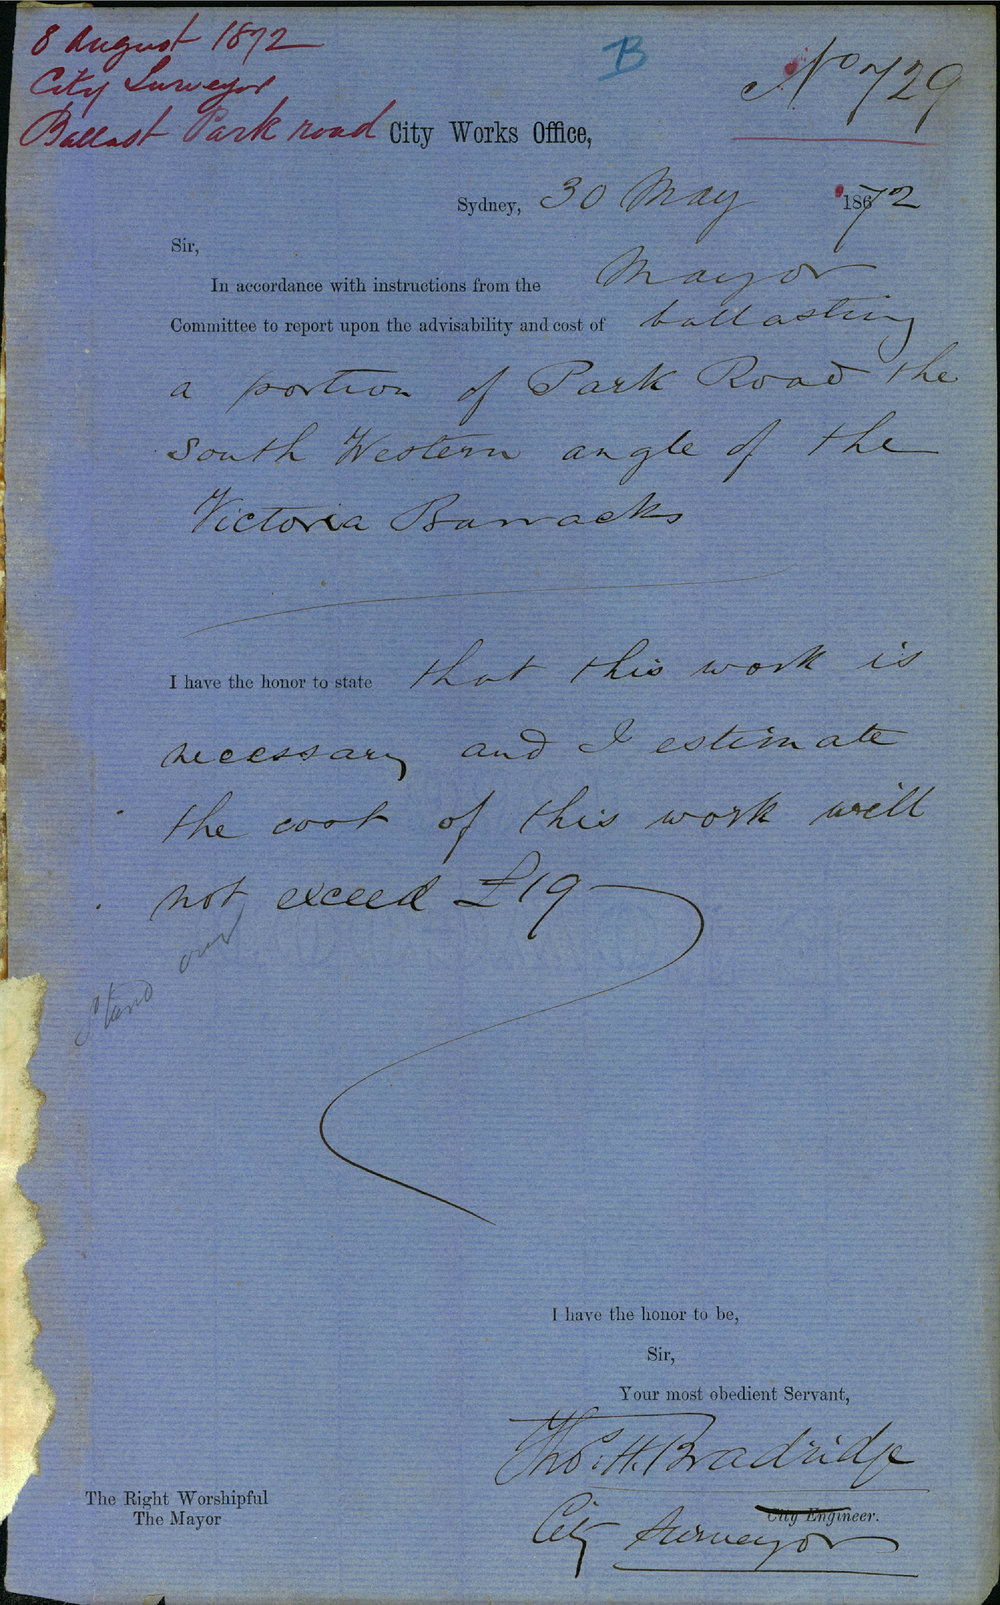 8 August 1872
City Surveyor
Ballast Park road
B
No 729
City Works Office,
Sydney, 30 May 1872
Sir,
In accordance with instructions from the Mayor
Committee to report upon the advisability and cost of ballasting
a portion of Park Road the
South Western angle of the
Victoria Barracks
I have the honor to state that this work is
necessary and I estimate
the cost of this work will
not exceed £19
Stand over
I have the honor to be,
Sir,
Your most obedient Servant,
Thos. H. Bradridge
City Engineer.
City Surveyor
The Right Worshipful
The Mayor